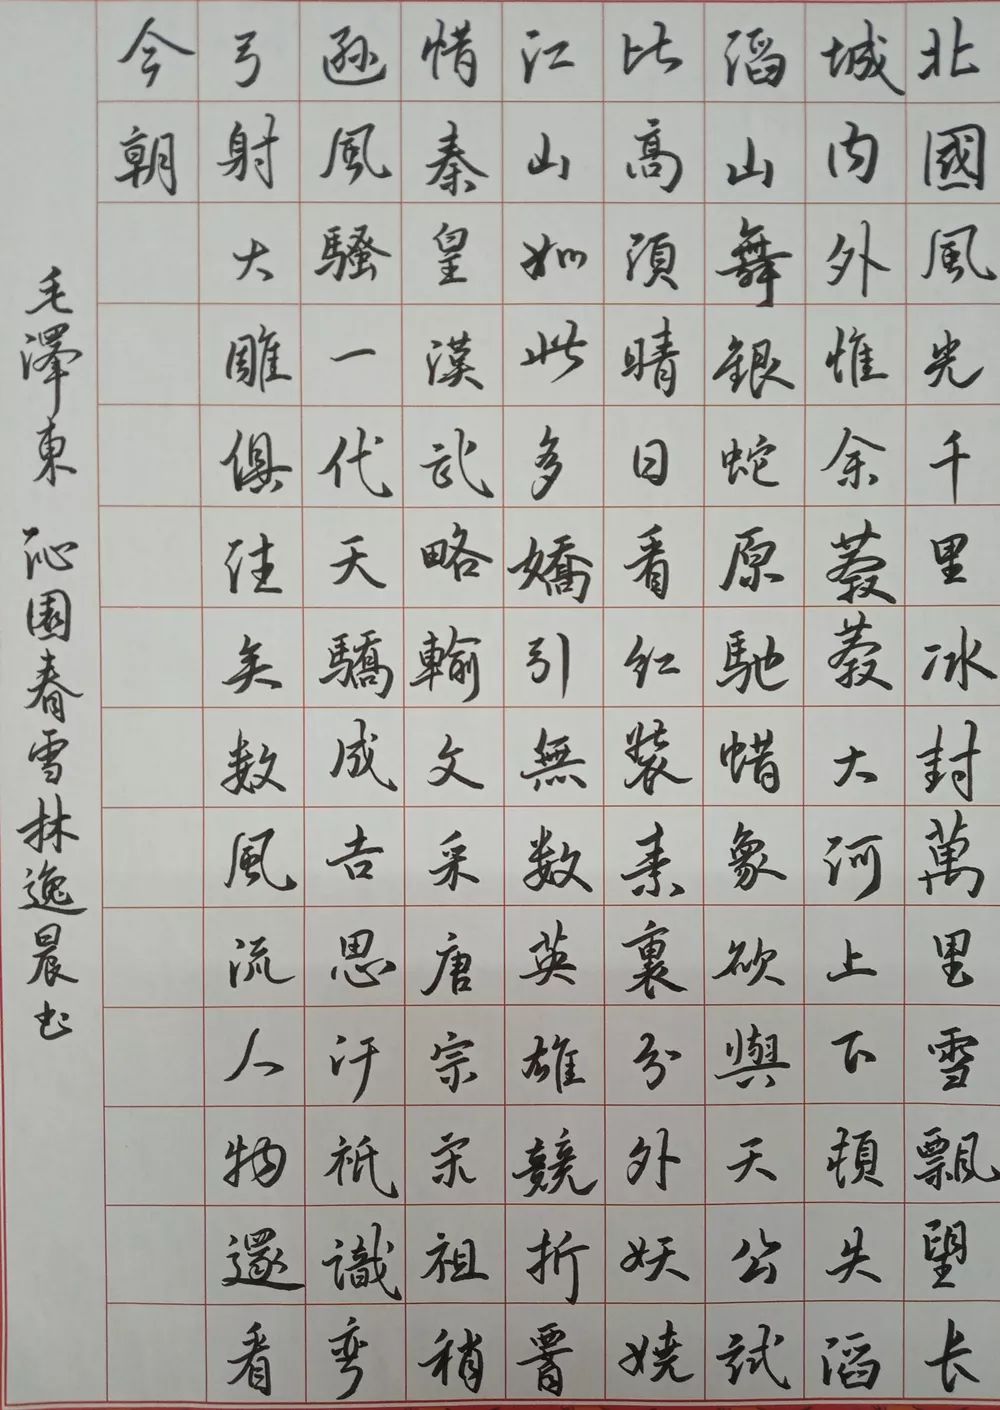 北國風光千里冰封萬里雪飄望长
城内外惟余莽莽大河上下頓失滔
滔山舞銀蛇原馳蜡象欲與天公試
比高須晴日看红裝素裹分外妖嬈
江山如此多嬌引無数英雄競折腰
惜秦皇漢武略輸文采唐宗宋祖稍
遜風騷一代天驕成吉思汗祇識彎
弓射大雕俱往矣数風流人物還看
今朝
毛澤東 沁園春雪林逸晨书